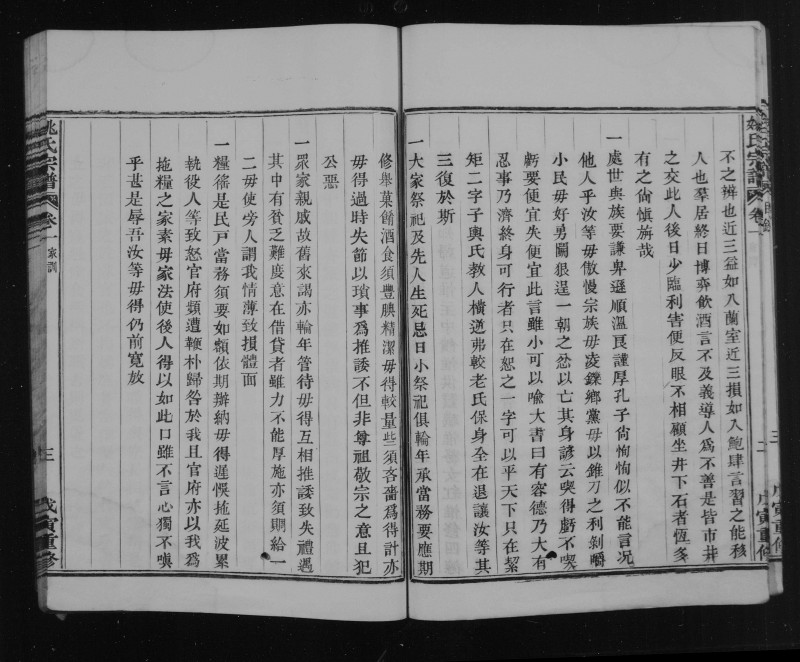 姚氏宗譜 卷一
二 戊寅重修
不之辨也近三益如入蘭室近三損如入鮑肆言習之能移
人也羣居終日博弈飲酒言不及義導人爲不善是皆市井
之交此人後日少臨利害便反眼不相顧坐井下石者恆多
有之尙愼旃哉
一處世與族要謙卑遜順溫良謹厚孔子尙恂恂似不能言况
他人乎汝等毋傲慢宗族毋凌鑠鄉黨毋以錐刀之利剝嚼
小民毋好勇鬬狠逞一朝之忿以亡其身諺云喫得虧不喫
虧要便宜失便宜此言雖小可以喩大書曰有容德乃大有
忍事乃濟終身可行者只在恕之一字可以平天下只在絜
矩二字子輿氏教人橫逆弗較老氏保身全在退讓汝等其
三復於斯
一大家祭祀及先人生死忌日小祭祀俱輪年承當務要應期
修舉菓餚酒食須豐腆精潔毋得較量些須吝嗇爲得計亦
毋得過時失節以瑣事爲推諉不但非尊祖敬宗之意且犯
公惡
一眾家親戚故舊來謁亦輪年管待毋得互相推諉致失禮遇
其中有貧乏難度意在借貸者雖力不能厚施亦須賙給一
二毋使傍人謂我情薄致損體面
一糧徭是民戸當務須要如額依期辦納毋得遲悞拖延波累
執役人等致怒官府類遭鞭朴歸咎於我且官府亦以我爲
拖糧之家素毋家法使後人得以如此口雖不言心獨不嗔
乎甚是辱吾汝等毋得仍前寬放
姚氏宗譜 卷一 家訓
三 戊寅重修